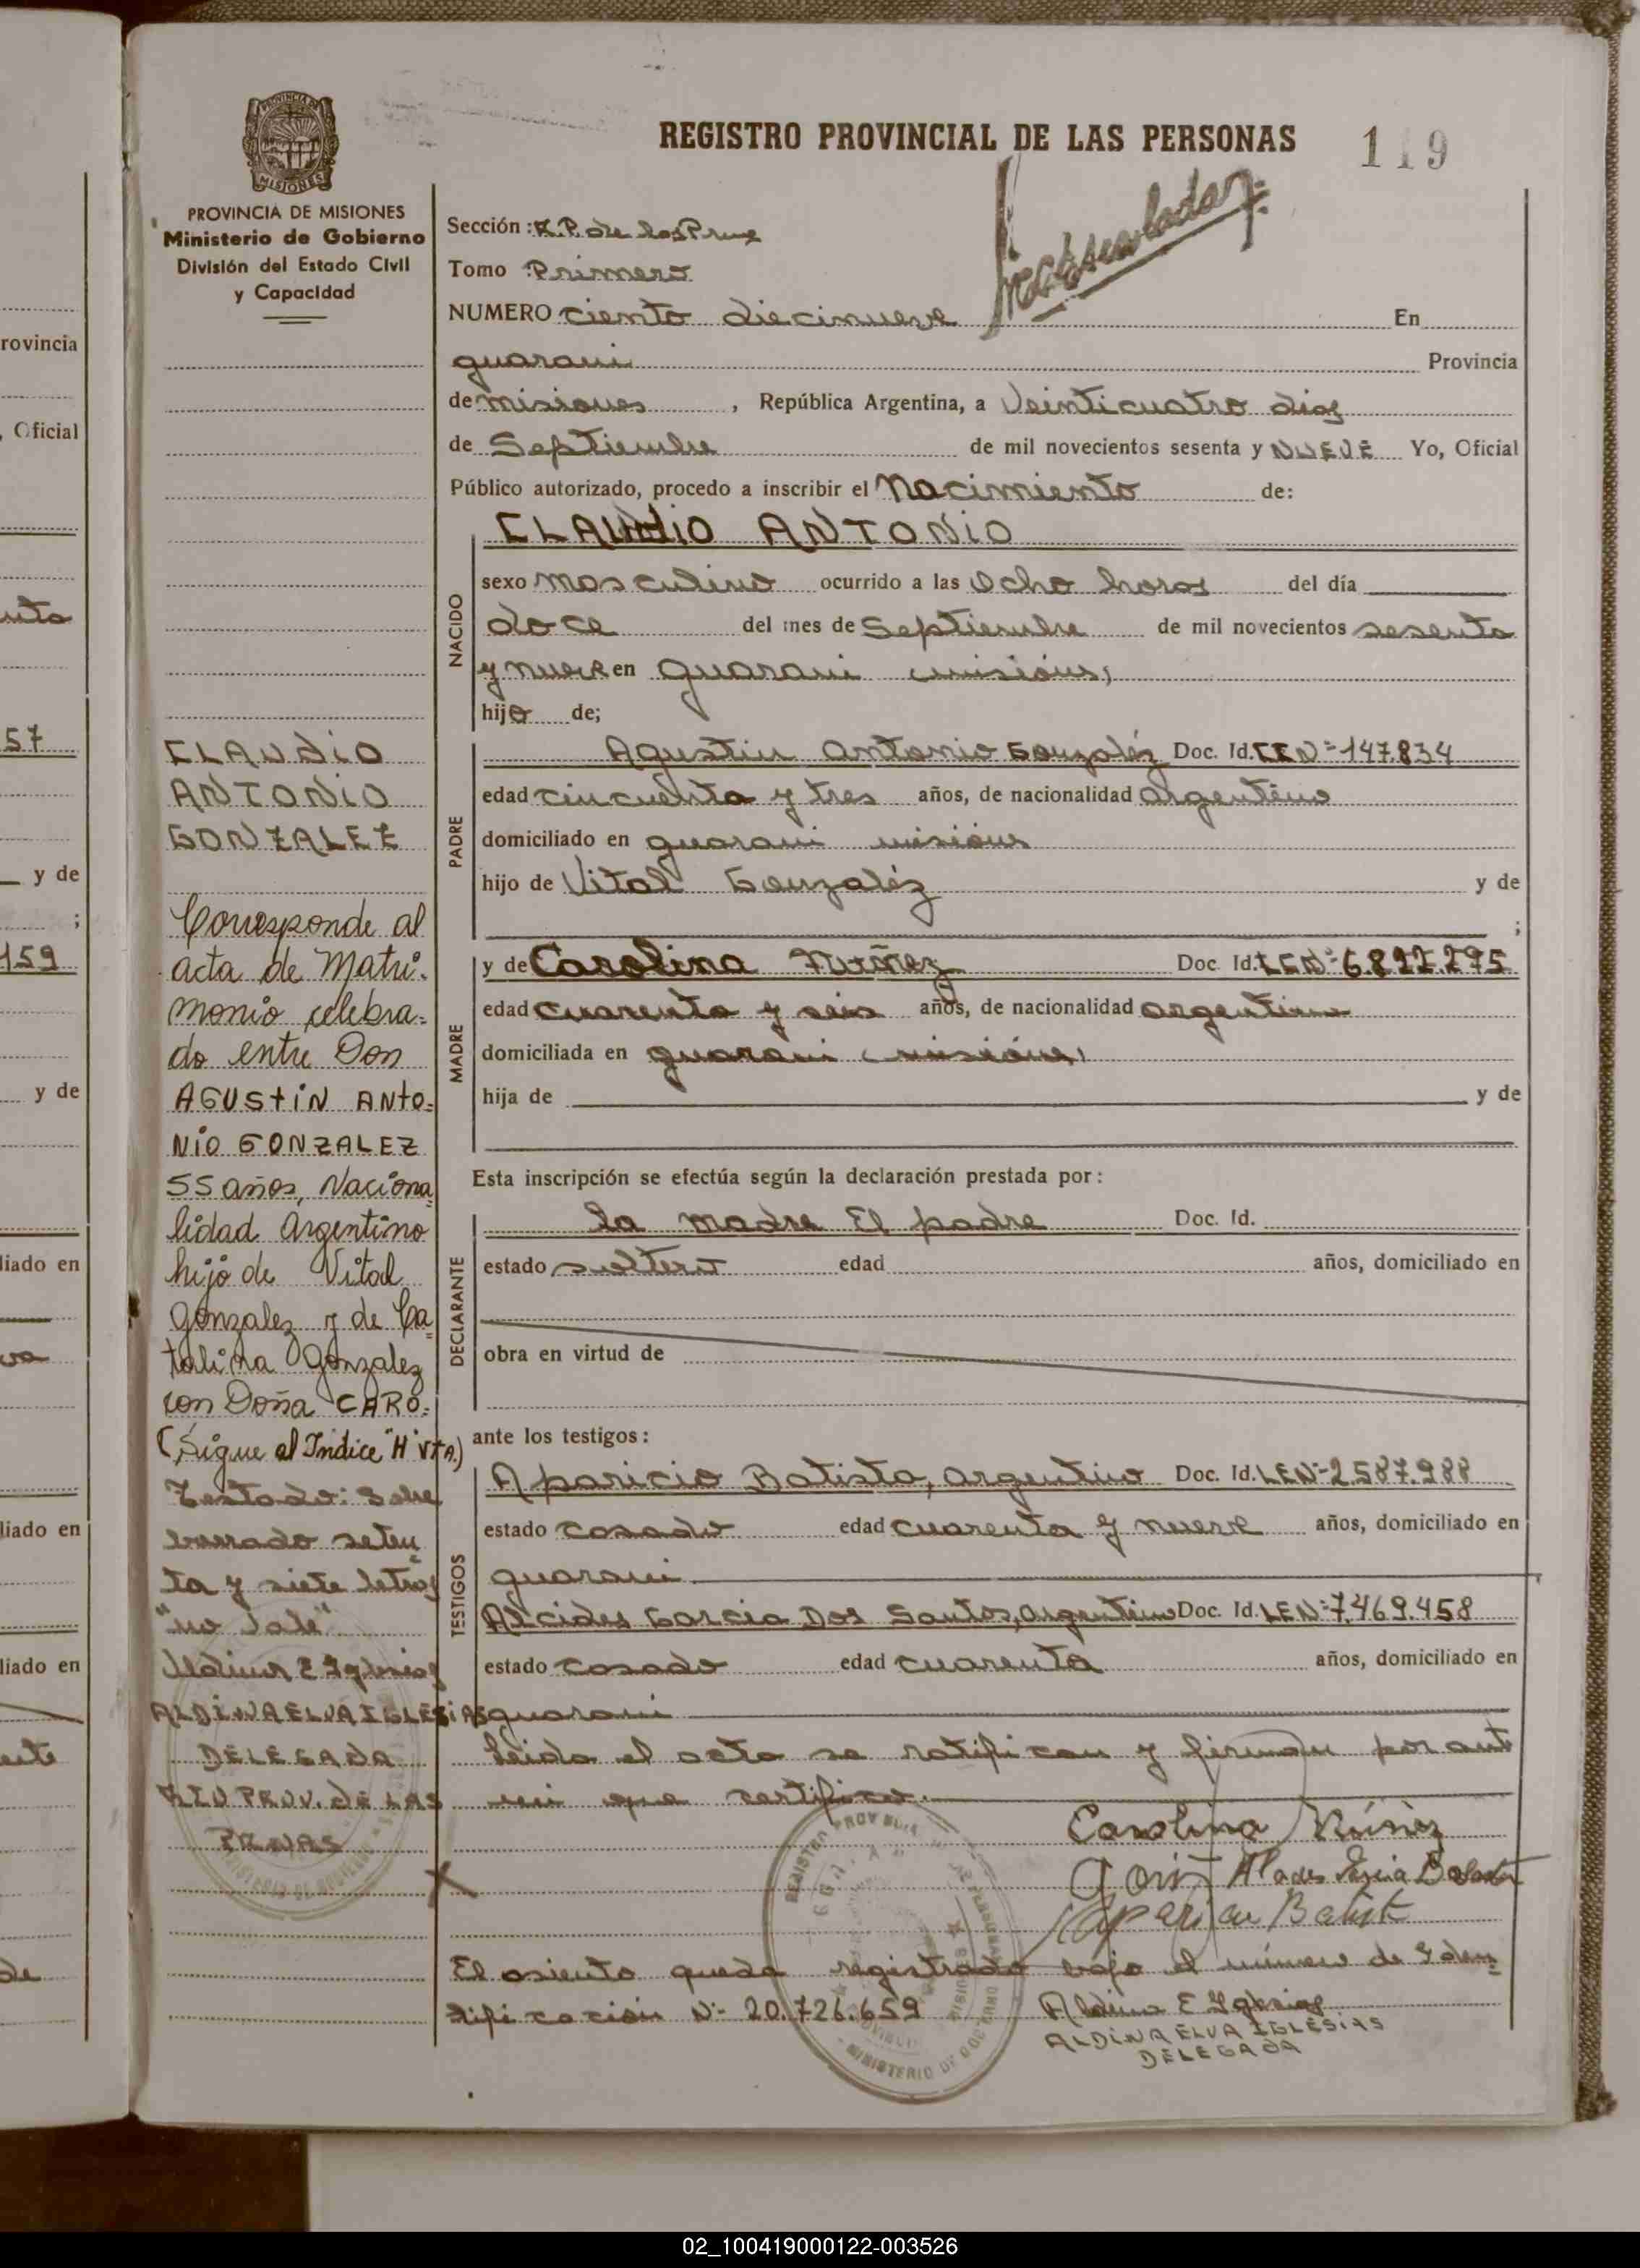 REGISTRO PROVINCIAL DE LAS PERSONAS
119
PROVINCIA DE MISIONES
Ministerio de Gobierno
División del Estado Civil
y Capacidad
Sección: R.P. de las
Tomo Primero
NUMERO ciento diecinueve En
guarani Provincia
de misiones, República Argentina, a Veinticuatro dias
de Septiembre de mil novecientos sesenta y NUEVE Yo, Oficial
Público autorizado, procedo a inscribir el Nacimiento de:
CLAUDIO ANTONIO
NACIDO
sexo masculino ocurrido a las Ocho horas del día
doce del mes de Septiembre de mil novecientos sesenta
y nueve en guarani misiones,
hijo de;
PADRE
Agustin Antonio Gonzaléz Doc. Id. 147.834
edad cincuenta y tres años, de nacionalidad argentino
domiciliado en guarani misiones
hijo de Vital Gonzaléz y de
;
MADRE
y de Carolina Nuñez Doc. Id.
edad cuarenta y seis años, de nacionalidad argentina
domiciliada en guarani misiones,
hija de y de
Esta inscripción se efectúa según la declaración prestada por:
DECLARANTE
la madre El padre Doc. Id.
estado soltero edad años, domiciliado en
obra en virtud de
ante los testigos:
TESTIGOS
Aparicio Batista, argentino Doc. Id. LEN=2.587.988
estado casado edad cuarenta y nueve años, domiciliado en
guarani
Alcides Garcia Dos Santos, argentino Doc. Id. LEN=7.469.458
estado casado edad cuarenta años, domiciliado en
guarani
Leida el acta se ratifican y firman por ante
mi que certifico.
Carolina Núñez
Aparicio Batista
El asiento queda registrado bajo el número de Iden=
tificación N=- 20.726.659
Aldina E Iglesias
ALDINA ELVA IGLESIAS
DELEGADA
CLAUDIO
ANTONIO
GONZALEZ
Corresponde al
acta de Matri=
monio celebra=
do entre Don
AGUSTIN ANTO=
NIO GONZALEZ
55 años, Naciona=
lidad Argentino
hijo de Vital
Gonzalez y de Ca=
talina Gonzalez
con Doña CARO=
(Sigue al Indice "H" VTA.)
Testado: Sobre
borrado seten=
ta y siete letras
"no vale"
Aldina E Iglesias
ALDINA ELVA IGLESIAS
DELEGADA
PROV. DE LAS
rovincia
, Oficial
57
y de
;
159
y de
liado en
liado en
liado en
de
02_100419000122-003526